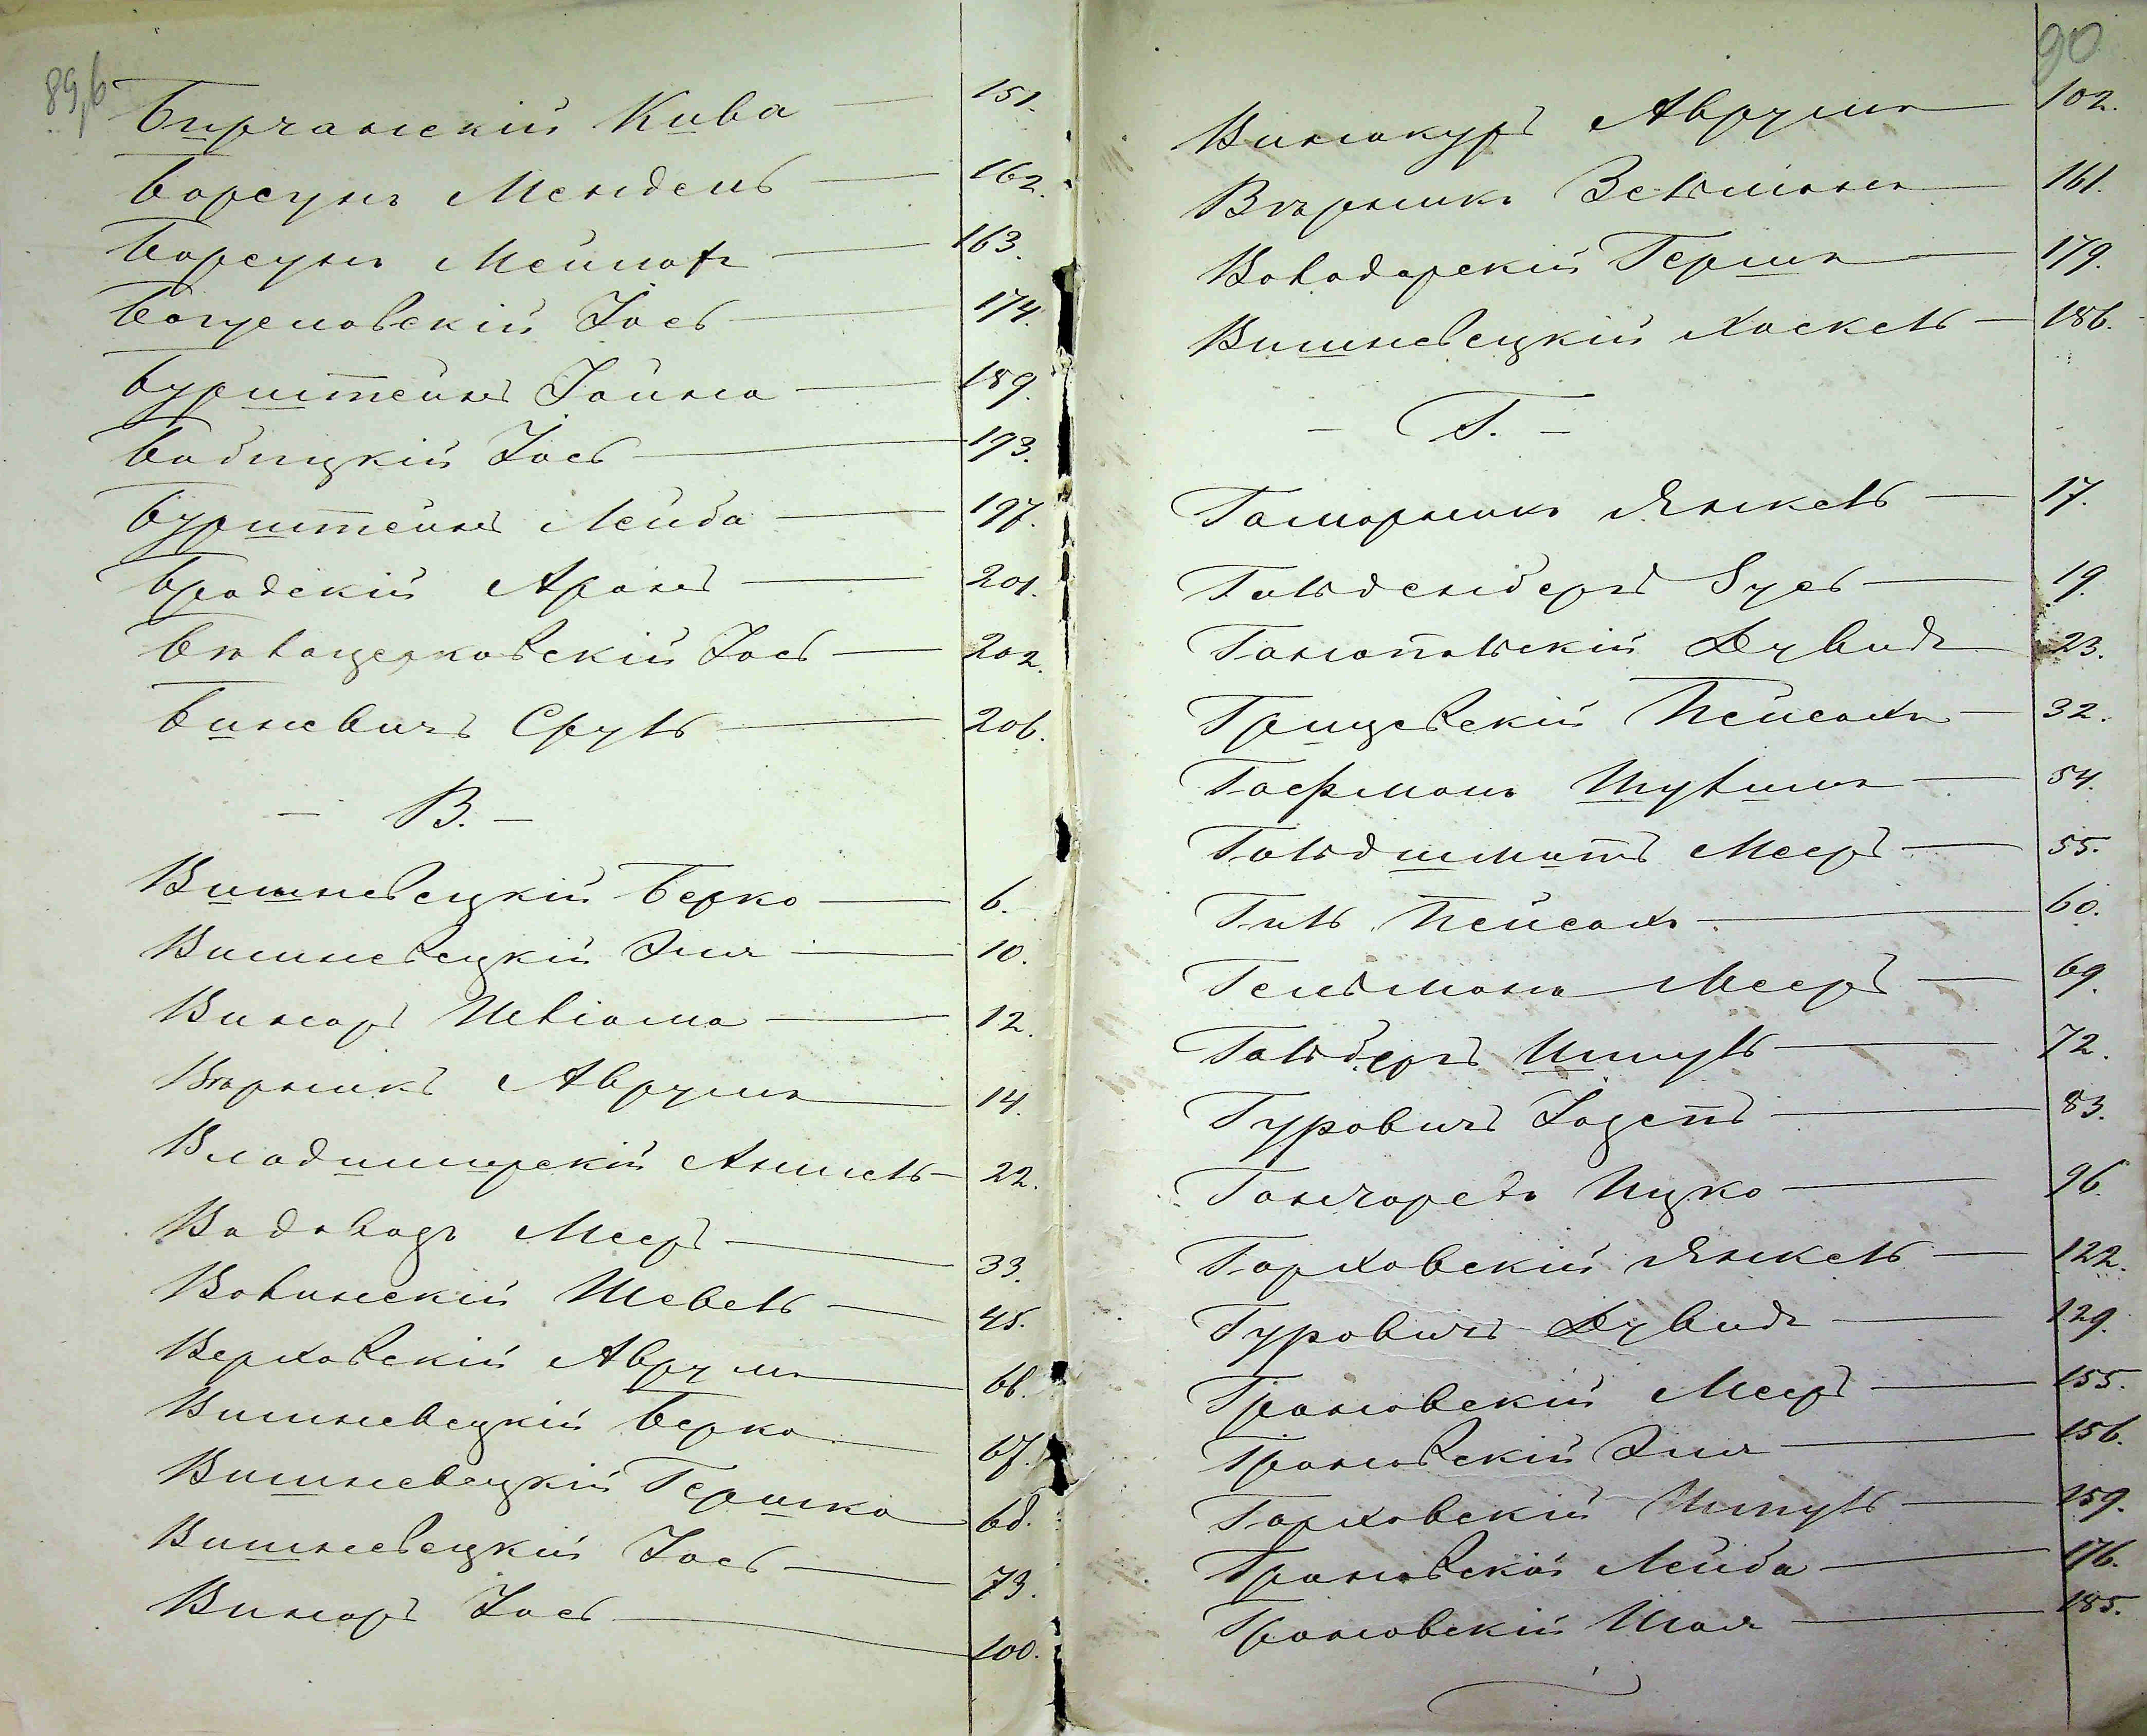 89,б
Бирчанскій Кива — 151.
Борсукъ Мендель — 162.
Борсукъ Мейлахъ — 163.
Богуславскій Іось — 174.
Бурштейнъ Іойна — 189.
Бабицкій Іось — 193.
Бурштейнъ Лейба — 197.
Бродскій Аронъ — 201.
Бѣлоцерковскій Іось — 202.
Биневичъ Сруль — 206.
— В. —
Вишневецкій Берко — 6.
Вишневецкій Эля — 10.
Винаръ Шліома — 12.
Вѣрникъ Аврумъ — 14.
Владимирскій Аншель — 22.
Водовозъ Мееръ — 33.
Волинскій Шевель — 45.
Верховскій Аврумъ — 66.
Вишневецкій Берко — 67.
Вишневецкій Гершко — 68.
Вишневецкій Іось — 73.
Винаръ Іось — 100.
90
Винокуръ Аврумъ — 102.
Вѣрникъ Зельманъ — 161.
Володарскій Гершъ — 179.
Вишневецкій Хаскель — 186.
— Г. —
Гамарникъ Янкель — 17.
Гольденбергъ Зусь — 19.
Ганопольскій Дувидъ — 23.
Грищевскій Пейсахъ — 32.
Гофманъ Шулимъ — 54.
Гольдшмитъ Мееръ — 55.
Гиль Пейсахъ — 60.
Гельманъ Мееръ — 69.
Гольберъ Шмуль — 72.
Гуровичъ Іозепъ — 83.
Гончаревъ Ицко — 96.
Горховскій Янкель — 122.
Гуровичъ Дувидъ — 129.
Грановскій Мееръ — 155.
Грановскій Эля — 156.
Горховскій Шмуль — 159.
Грановскій Лейба — 176.
Грановскій Шая — 185.